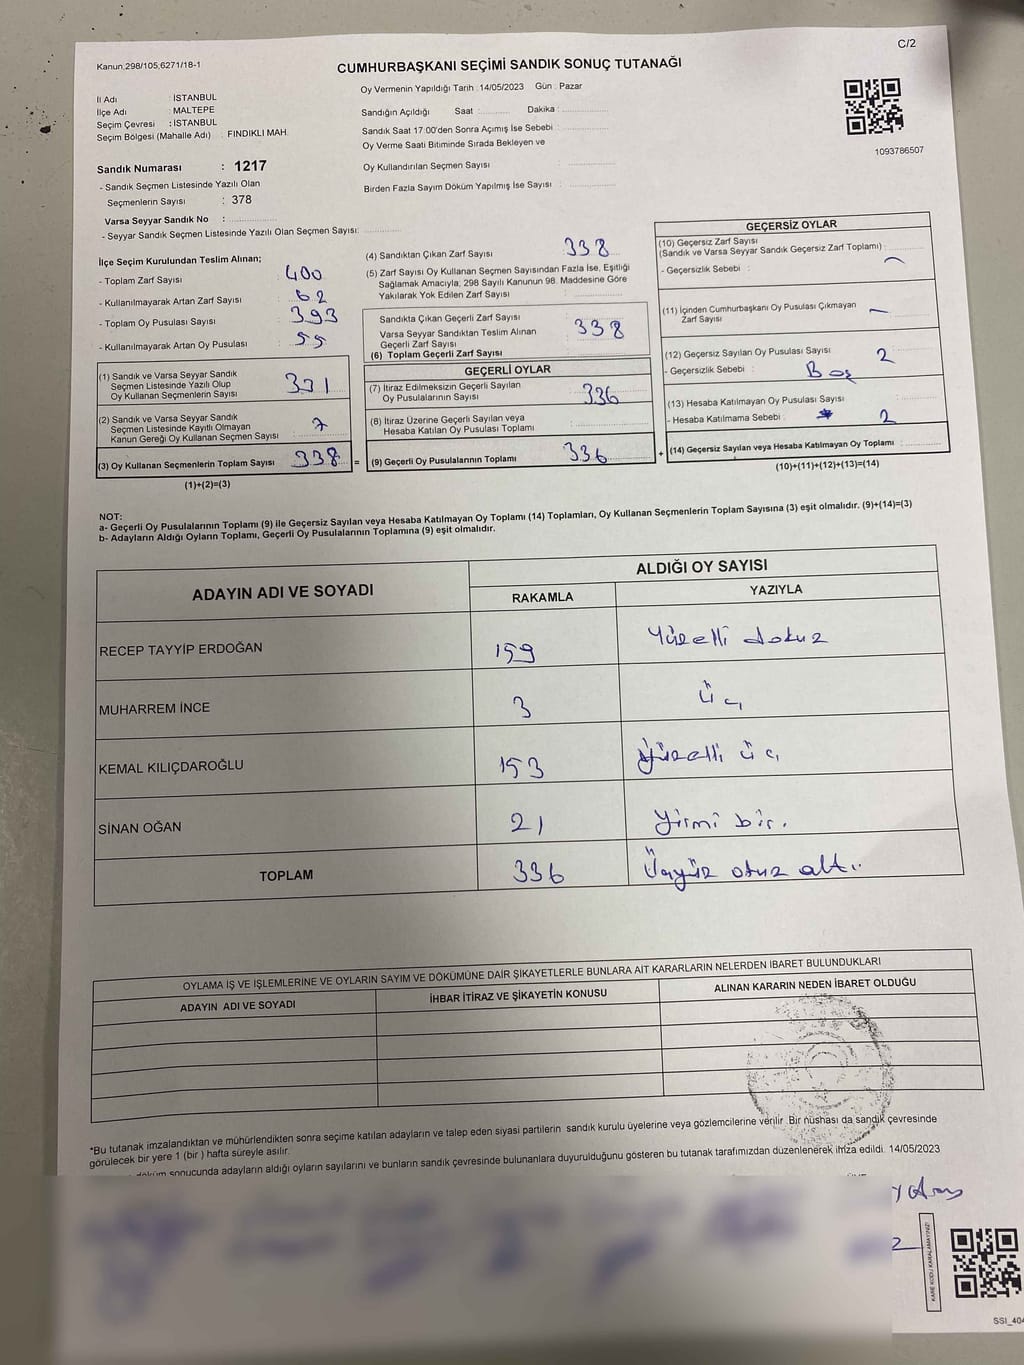 C/2
Kanun:298/105,6271/18-1
CUMHURBAŞKANI SEÇİMİ SANDIK SONUÇ TUTANAĞI
İl Adı : İSTANBUL
İlçe Adı : MALTEPE
Seçim Çevresi : İSTANBUL
Seçim Bölgesi (Mahalle Adı) : FINDIKLI MAH.
Oy Vermenin Yapıldığı Tarih : 14/05/2023 Gün : Pazar
Sandığın Açıldığı Saat : Dakika :
Sandık Saat 17:00'den Sonra Açımış İse Sebebi :
Oy Verme Saati Bitiminde Sırada Bekleyen ve
Oy Kullandırılan Seçmen Sayısı :
Birden Fazla Sayım Döküm Yapılmış İse Sayısı :
1093786507
Sandık Numarası : 1217
- Sandık Seçmen Listesinde Yazılı Olan
Seçmenlerin Sayısı : 378
Varsa Seyyar Sandık No :
- Seyyar Sandık Seçmen Listesinde Yazılı Olan Seçmen Sayısı:
İlçe Seçim Kurulundan Teslim Alınan;
- Toplam Zarf Sayısı : 400
- Kullanılmayarak Artan Zarf Sayısı : 62
- Toplam Oy Pusulası Sayısı : 393
- Kullanılmayarak Artan Oy Pusulası : 55
(1) Sandık ve Varsa Seyyar Sandık
Seçmen Listesinde Yazılı Olup
Oy Kullanan Seçmenlerin Sayısı : 331
(2) Sandık ve Varsa Seyyar Sandık
Seçmen Listesinde Kayıtlı Olmayan
Kanun Gereği Oy Kullanan Seçmen Sayısı : 7
(3) Oy Kullanan Seçmenlerin Toplam Sayısı 338 =
(1)+(2)=(3)
(4) Sandıktan Çıkan Zarf Sayısı : 338
(5) Zarf Sayısı Oy Kullanan Seçmen Sayısından Fazla İse, Eşitliği
Sağlamak Amacıyla, 298 Sayılı Kanunun 98. Maddesine Göre
Yakılarak Yok Edilen Zarf Sayısı :
Sandıkta Çıkan Geçerli Zarf Sayısı
Varsa Seyyar Sandıktan Teslim Alınan
Geçerli Zarf Sayısı
(6) Toplam Geçerli Zarf Sayısı : 338
GEÇERLİ OYLAR
(7) İtiraz Edilmeksizin Geçerli Sayılan
Oy Pusulalarının Sayısı : 336
(8) İtiraz Üzerine Geçerli Sayılan veya
Hesaba Katılan Oy Pusulası Toplamı :
(9) Geçerli Oy Pusulalarının Toplamı : 336 +
GEÇERSİZ OYLAR
(10) Geçersiz Zarf Sayısı
(Sandık ve Varsa Seyyar Sandık Geçersiz Zarf Toplamı) : —
- Geçersizlik Sebebi :
(11) İçinden Cumhurbaşkanı Oy Pusulası Çıkmayan
Zarf Sayısı : —
(12) Geçersiz Sayılan Oy Pusulası Sayısı : 2
- Geçersizlik Sebebi : Boş
(13) Hesaba Katılmayan Oy Pusulası Sayısı :
- Hesaba Katılmama Sebebi : 2
(14) Geçersiz Sayılan veya Hesaba Katılmayan Oy Toplamı :
(10)+(11)+(12)+(13)=(14)
NOT:
a- Geçerli Oy Pusulalarının Toplamı (9) ile Geçersiz Sayılan veya Hesaba Katılmayan Oy Toplamı (14) Toplamları, Oy Kullanan Seçmenlerin Toplam Sayısına (3) eşit olmalıdır. (9)+(14)=(3)
b- Adayların Aldığı Oyların Toplamı, Geçerli Oy Pusulalarının Toplamına (9) eşit olmalıdır.
ADAYIN ADI VE SOYADI ALDIĞI OY SAYISI
RAKAMLA YAZIYLA
RECEP TAYYİP ERDOĞAN 159 Yüzelli dokuz
MUHARREM İNCE 3 üç
KEMAL KILIÇDAROĞLU 153 Yüzelli üç
SİNAN OĞAN 21 Yirmi bir.
TOPLAM 336 Üçyüz otuz altı.
OYLAMA İŞ VE İŞLEMLERİNE VE OYLARIN SAYIM VE DÖKÜMÜNE DAİR ŞİKAYETLERLE BUNLARA AİT KARARLARIN NELERDEN İBARET BULUNDUKLARI
ADAYIN ADI VE SOYADI İHBAR İTİRAZ VE ŞİKAYETİN KONUSU ALINAN KARARIN NEDEN İBARET OLDUĞU
*Bu tutanak imzalandıktan ve mühürlendikten sonra seçime katılan adayların ve talep eden siyasi partilerin sandık kurulu üyelerine veya gözlemcilerine verilir. Bir nüshası da sandık çevresinde
görülecek bir yere 1 (bir ) hafta süreyle asılır.
döküm sonucunda adayların aldığı oyların sayılarını ve bunların sandık çevresinde bulunanlara duyurulduğunu gösteren bu tutanak tarafımızdan düzenlenerek imza edildi. 14/05/2023
KARE KODU KARALAMAYINIZ!
SSI_404